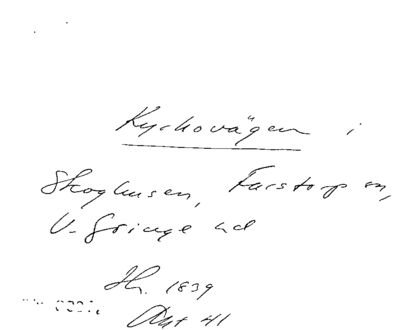 Kyrkovägen i
Skoghusen, Farstorp sn,
V. Göinge hd
Jh. 1839
Akt 41